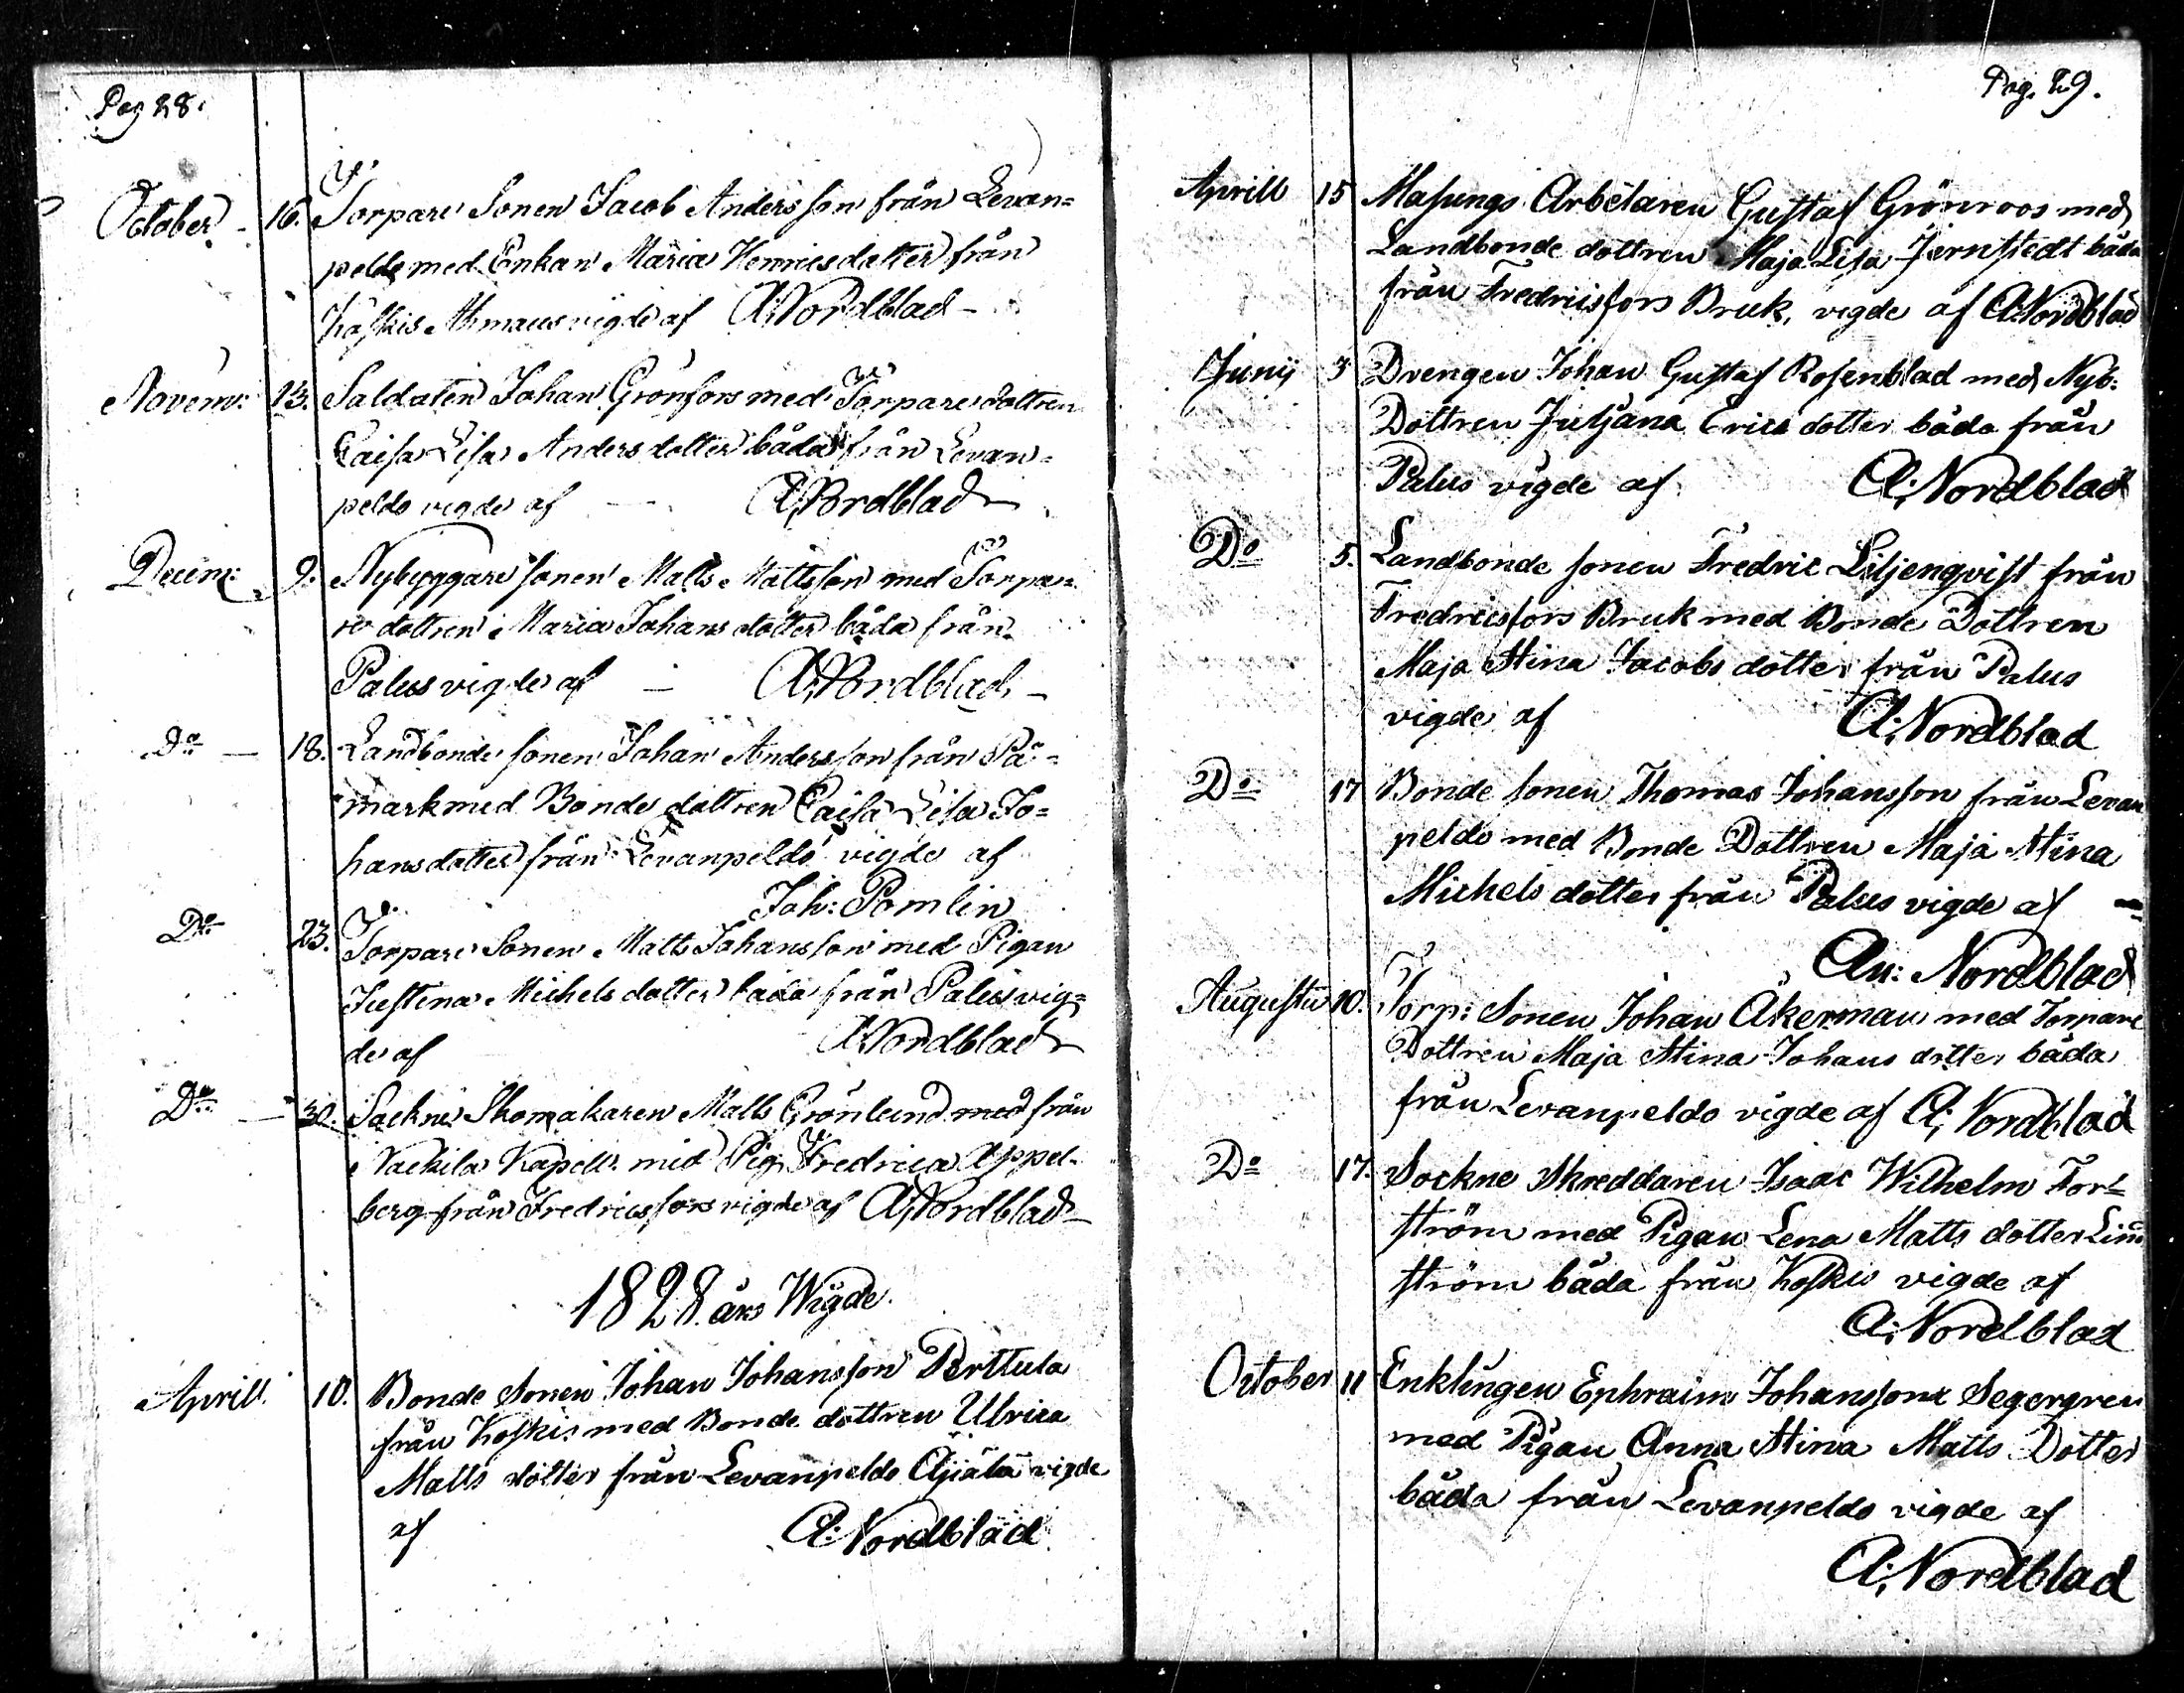 Pag 28.
October - 16. Torpare Sonen Jacob Andersson från Levan=
peldo med Enkan Maria Henricsdotter från
Ahmaus vigde af A: Nordblad -
Novem: 13. Saldaten Johan Grönfors med Torpare dottren
Caisa Lisa Andersdotter båda från Levan=
peldo vigde af - A: Nordblad
Decem: 9. Nybyggare sonen Matts Mattsson med Torpa=
re dottren Maria Johans dotter båda från
Palus vigde af - A: Nordblad -
Do - 18. Landbonde sonen Johan Andersson från På=
mark med Bonde dottren Caisa Lisa Jo=
hansdotter från Levanpeldo vigde af
Joh: Pomlin
Do 23. Torpare Sonen Matts Johansson med Pigan
Justina Michels dotter båda från Palus vig=
de af A: Nordblad
Do - 30. Sockne Skomakaren Matts Grönlund med från
Nackila Kapell med Pig: Fredrica Appel=
berg från Fredricsfors vigde af A: Nordblad -
1828 års Wigde.
Aprill 10. Bonde Sonen Johan Johansson Perttula
från Koskis med Bonde dottren Ulrica
Matts dotter från Levanpeldo Äjälä vigde
af A: Nordblad
Pag. 29.
Aprill 15 Masungs Arbetaren Gustaf Grönroos med
Landbonde dottren Maja Lisa Jernstedt båda
från Fredricsfors Bruk, vigde af A: Nordblad
Junij 3 Drengen Johan Gustaf Rosenblad med Nyb:
Dottren Juljana Erics dotter båda från
Palus vigde af A: Nordblad
Do 5. Landbonde sonen Fredric Liljenqvist från
Fredricsfors Bruk med Bonde Dottren
Maja Stina Jacobs dotter från Palus
vigde af A: Nordblad
Do 17 Bonde sonen Thomas Johansson från Levan
peldo med Bonde Dottren Maja Stina
Michels dotter från Palus vigde af -
An: Nordblad
Augusti 10. Torp: Sonen Johan Åkerman med Torpare
Dottren Maja Stina Johans dotter båda
från Levanpeldo vigde af A: Nordblad
Do 17. Sockne Skreddaren Isaac Wilhelm For=
ström med Pigan Lena Matts dotter Lind
ström båda från Koskis vigde af
A: Nordblad
October 11 Enklingen Ephraim Johansson Segergren
med Pigan Anna Stina Matts Dotter
båda från Levanpeldo vigde af
A: Nordblad